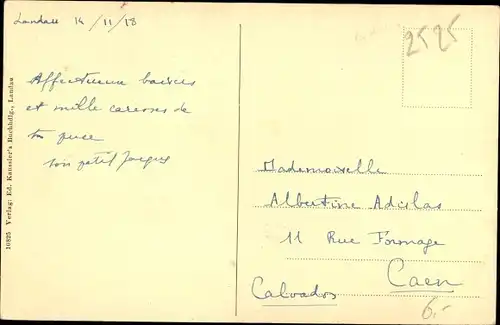 Landau 14/11/18
2525
Affectueux baisers
et mille caresses de
ton
ton petit Jacques
Mademoiselle
Albertine Adislas
11 Rue Formage
Caen
Calvados
6.-
10825 Verlag: Ed. Kaussler's Buchhdlg., Landau